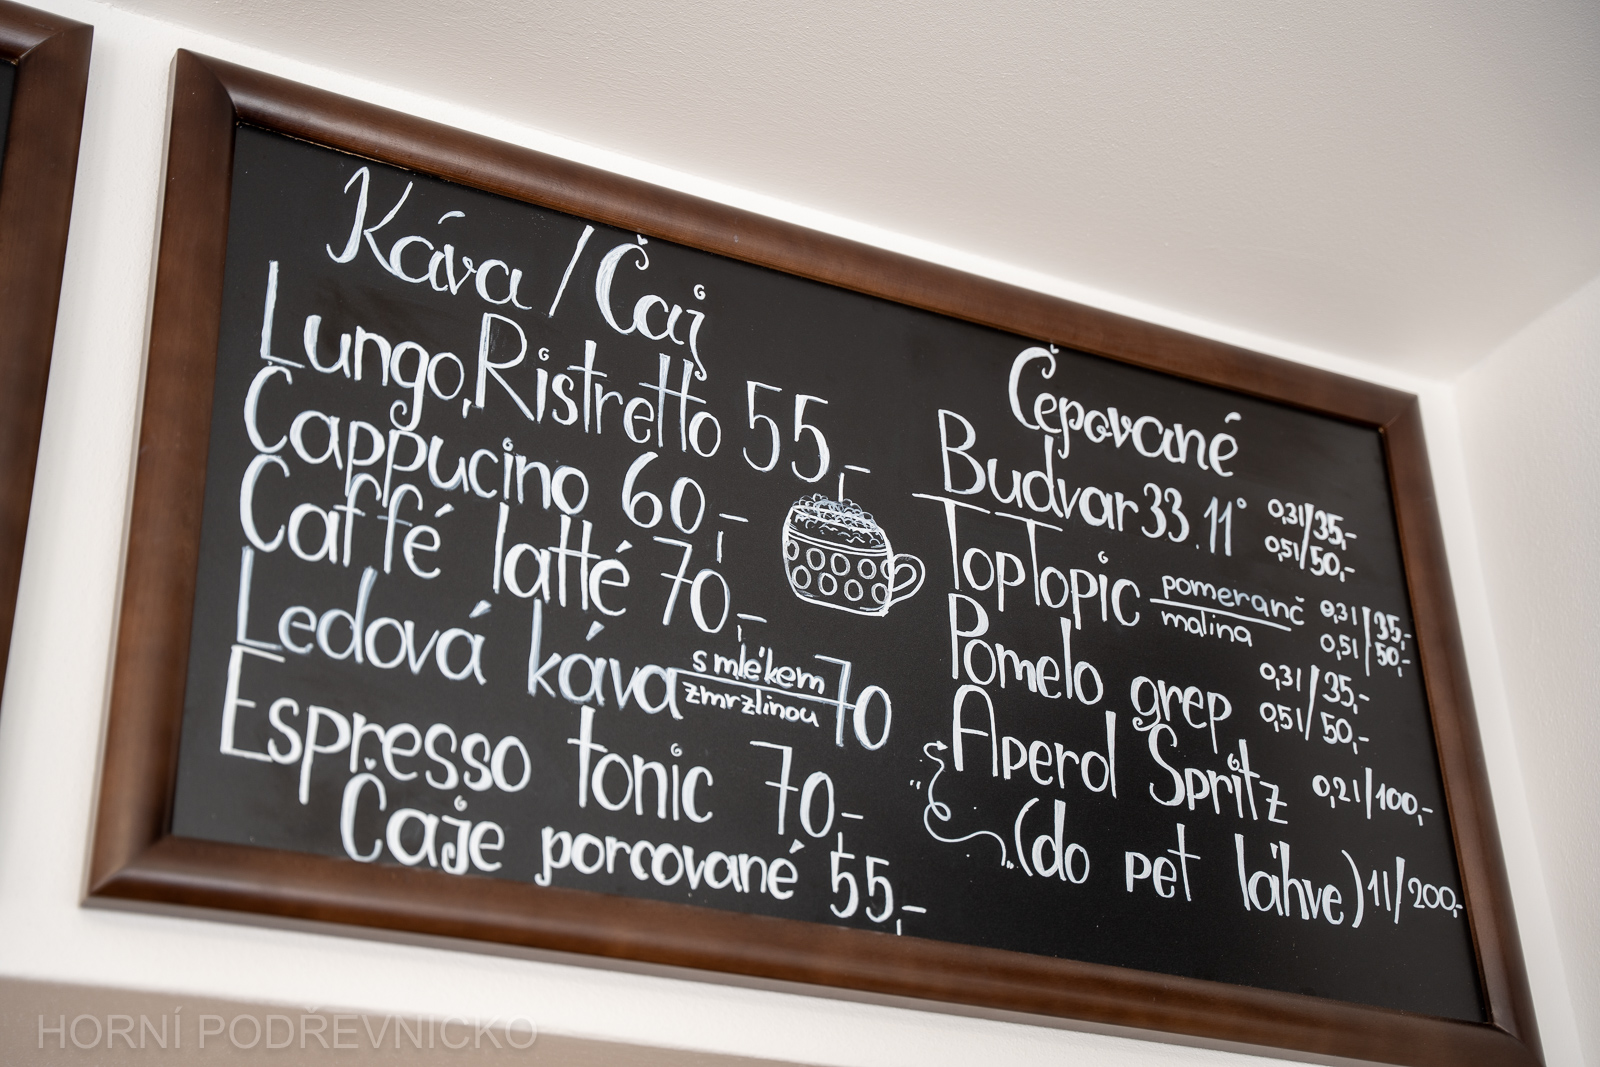 Káva / Čaj
Lungo, Ristretto 55,-
Cappucino 60,-
Caffé latté 70,-
Ledová káva s mlékem 70
zmrzlinou
Espresso tonic 70,-
Čaje porcované 55,-
Čepované
Budvar 33. 11° 0,3l/35,-
0,5l/50,-
TopTopic pomeranč 0,3l/35,-
malina 0,5l/50,-
Pomelo grep 0,3l/35,-
0,5l/50,-
Aperol Spritz 0,2l/100,-
(do pet láhve) 1l/200,-
HORNÍ PODŘEVNICKO